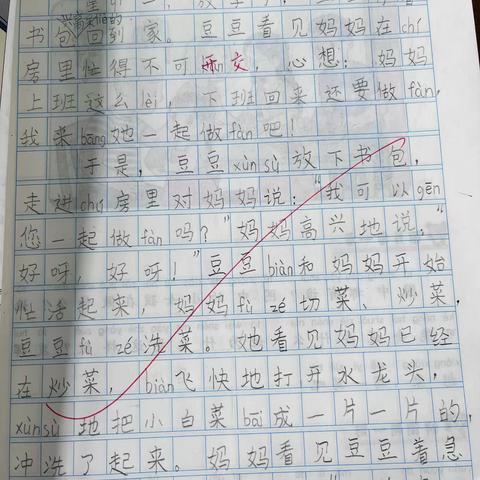 书包回到家。豆豆看见妈妈在chí
房里忙得不可开交,心想:妈妈
上班这么lèi,下班回来还要做fàn,
我来bāng她一起做fàn吧!
于是,豆豆xùn sù放下书包,
走进chú房里对妈妈说:“我可以gēn
您一起做fàn吗?”妈妈高兴地说:“
好呀,好呀!”豆豆biàn和妈妈开始
忙活起来,妈妈fù zé切菜、炒菜,
豆豆fù zé洗菜。她看见妈妈已经
在炒菜,biàn飞快地打开水龙头,
xùn sù地把小白菜bāi成一片一片的,
冲洗了起来。妈妈看见豆豆着急